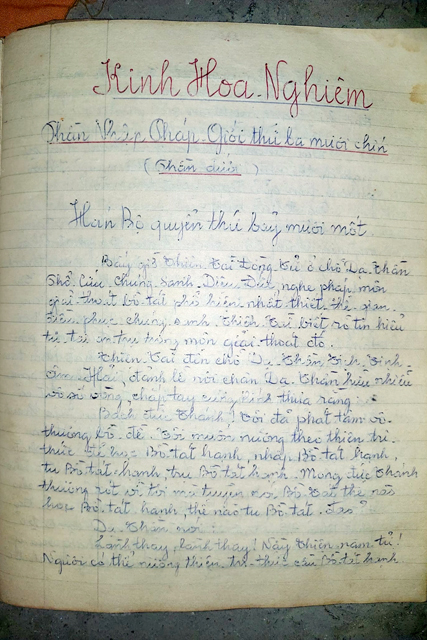 Kinh Hoa Nghiêm
Phẩm Nhập Pháp Giới thứ ba mươi chín
( Phần dưới )
Hán Bộ quyển thứ bảy mươi mốt
Bấy giờ Thiện Tài Đồng Tử ở chỗ Dạ Thần
Phổ Cứu Chúng Sanh Diệu Đức, nghe pháp môn
giải thoát bồ tát phổ hiện nhất thiết thế gian
điều phục chúng sanh. Thiện Tài biết rõ tín hiểu
tự tại an trụ trong môn giải thoát đó.
Thiện Tài đến chỗ Dạ Thần Tịch Tịnh
Âm Hải, đảnh lễ nơi chân Dạ Thần hữu nhiễu
vô số vòng, chấp tay cung kính thưa rằng:
Bạch đức Thánh! Tôi đã phát tâm vô-
thượng bồ-đề. Tôi muốn nương theo thiện tri-
thức để học Bồ tát hạnh, nhập Bồ tát hạnh,
tu Bồ tát hạnh, trụ Bồ tát hạnh. Mong đức Thánh
thương xót vì tôi mà tuyên nói Bồ Tát thế nào
học Bồ tát hạnh, thế nào tu Bồ tát đạo?
Dạ Thần nói:
Lành thay, lành thay! Này thiện nam tử!
Ngươi có thể nương thiện tri-thức cầu Bồ tát hạnh